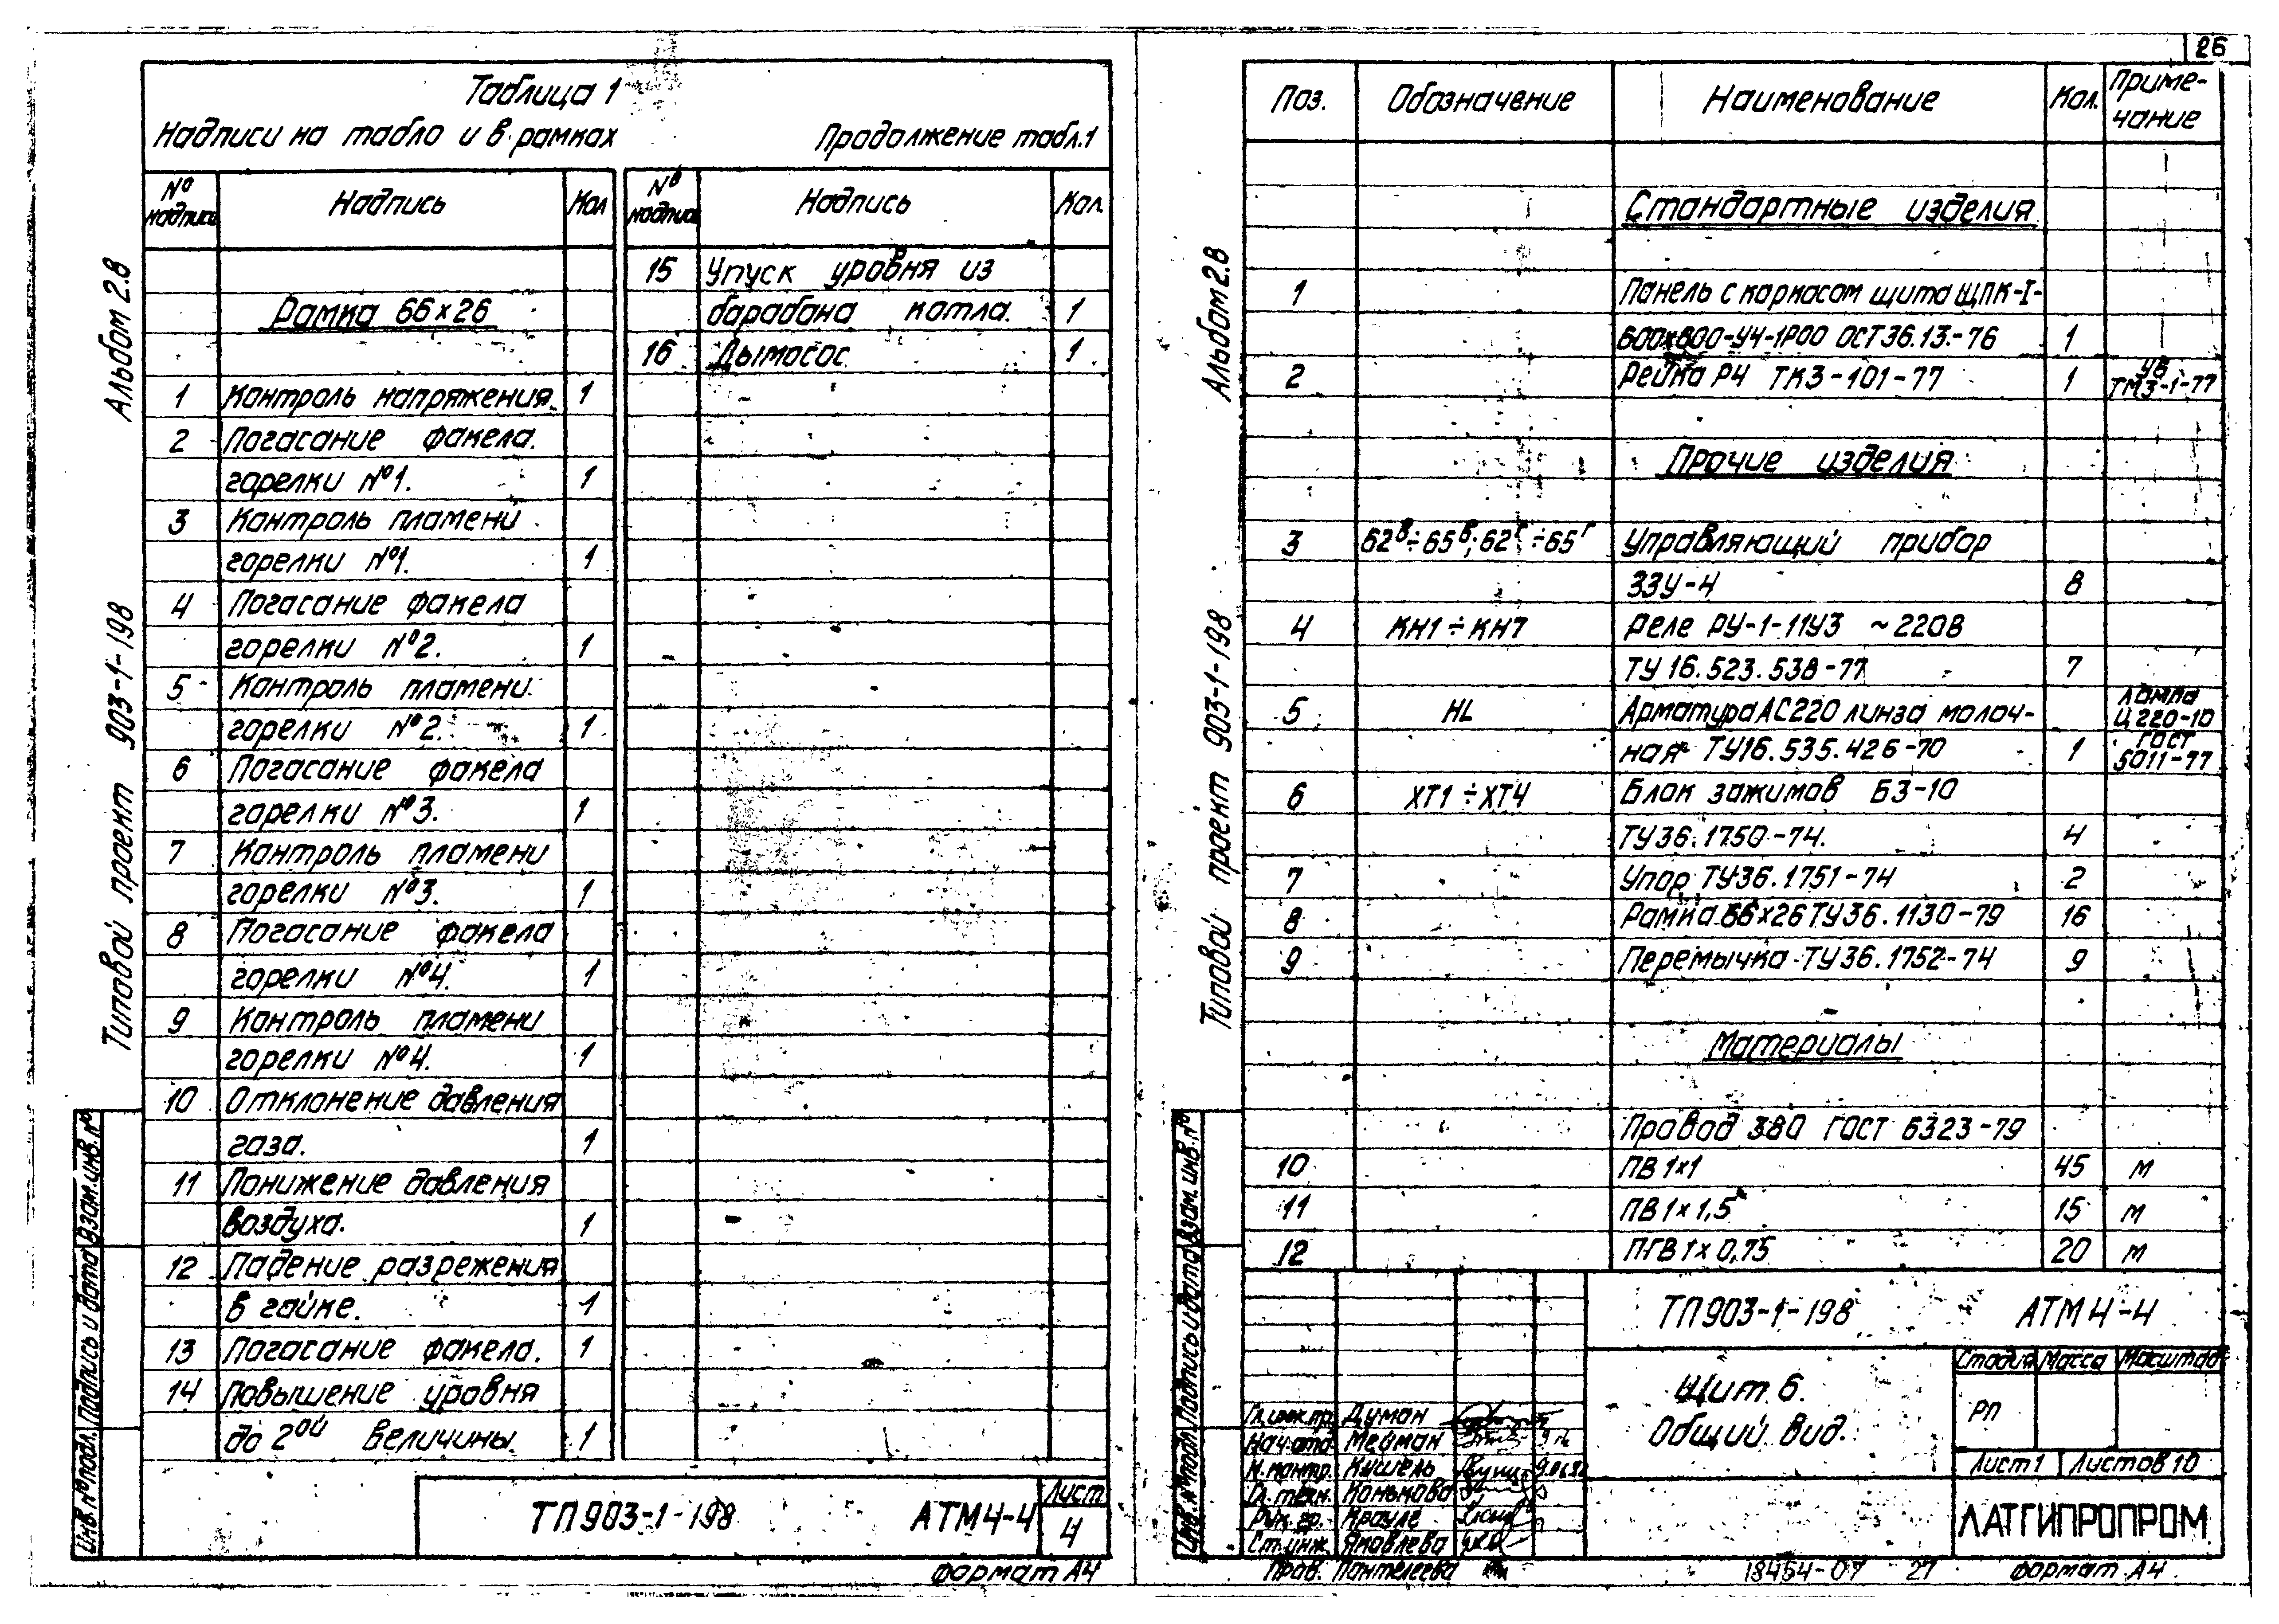 26
Таблица 1
Надписи на табло и в рамках
Продолжение табл.1
№ надписи
Надпись
Кол
№ надписи
Надпись
Кол.
Рамка 66×26
1 Контроль напряжения. 1
2 Погасание факела.
горелки №1. 1
3 Контроль пламени
горелки №1. 1
4 Погасание факела
горелки №2. 1
5 Контроль пламени
горелки №2. 1
6 Погасание факела
горелки №3. 1
7 Контроль пламени
горелки №3. 1
8 Погасание факела
горелки №4. 1
9 Контроль пламени
горелки №4. 1
10 Отклонение давления
газа. 1
11 Понижение давления
воздуха. 1
12 Падение разрежения
в гайке. 1
13 Погасание факела. 1
14 Повышение уровня
до 2ой величины 1
15 Упуск уровня из
барабана котла. 1
16 Дымосос 1
Альбом 2.8
Типовой проект 903-1-198
Инв.№подл. Подпись и дата Взам.инв.№
ТП 903-1-198 АТМ4-4
Лист
4
формат А4
Поз. Обозначение Наименование Кол. Приме-
чание
Стандартные изделия
1 Панель с каркасом щита ЩПК-I-
600×600-У4-1Р00 ОСТ 36.13.-76 1
2 Рейка Р4 ТК3-101-77 1 ТМ3-1-77
Прочие изделия
3 62в÷65в; 62г÷65г Управляющий прибор
ЗЗУ-4 8
4 КН1÷КН7 Реле РУ-1-11У3 ~220В
ТУ 16.523.538-77 7
5 HL Арматура АС220 линза молоч-
ная ТУ16.535.426-70 1
лампа
Ц220-10
ГОСТ
5011-77
6 ХТ1÷ХТ4 Блок зажимов БЗ-10
ТУ36.1750-74. 4
7 Упор ТУ36.1751-74 2
8 Рамка 66×26 ТУ36.1130-79 16
9 Перемычка ТУ36.1752-74 9
Материалы
Провод 380 ГОСТ 6323-79
10 ПВ 1×1 45 м
11 ПВ 1×1,5 15 м
12 ПГВ 1×0,75 20 м
Альбом 2.8
Типовой проект 903-1-198
Инв.№подл. Подпись и дата Взам.инв.№
ТП 903-1-198 АТМ4-4
Щит 6.
Общий вид.
Стадия Масса Масштаб
РП
Лист 1 Листов 10
ЛАТГИПРОПРОМ
Гл.инж.пр. Думан
Нач.отд. Мейман
Н.контр. Кушель
Гл.техн. Конькова
Рук.гр. Крауле
Ст.инж. Яковлева
Пров. Пантелеева
18454-07 27
формат А4